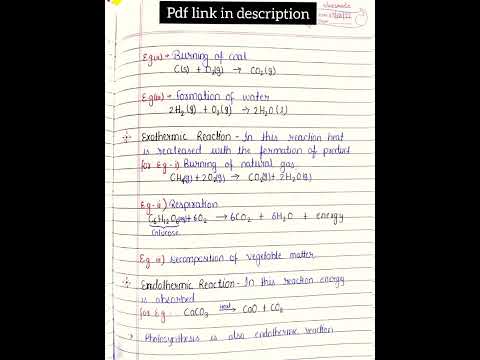 Pdf link in description
Eg(ii) → Burning of coal
C(s) + O₂(g) → CO₂(g)
Eg(iii) → Formation of water
2H₂(g) + O₂(g) → 2H₂O(l)
Exothermic Reaction - In this reaction heat
is realeased with the formation of product
for Eg - i) Burning of natural gas
CH₄(g) + 2O₂(g) → CO₂(g) + 2H₂O(g)
Eg - ii) Respiration
C₆H₁₂O₆(aq) + 6O₂ → 6CO₂ + 6H₂O + energy
Glucose
Eg iii) Decomposition of vegetable matter
Endothermic Reaction - In this reaction energy
is absorbed
for Eg - CaCO₃ Heat→ CaO + CO₂
Photosynthesis is also endothermic reaction